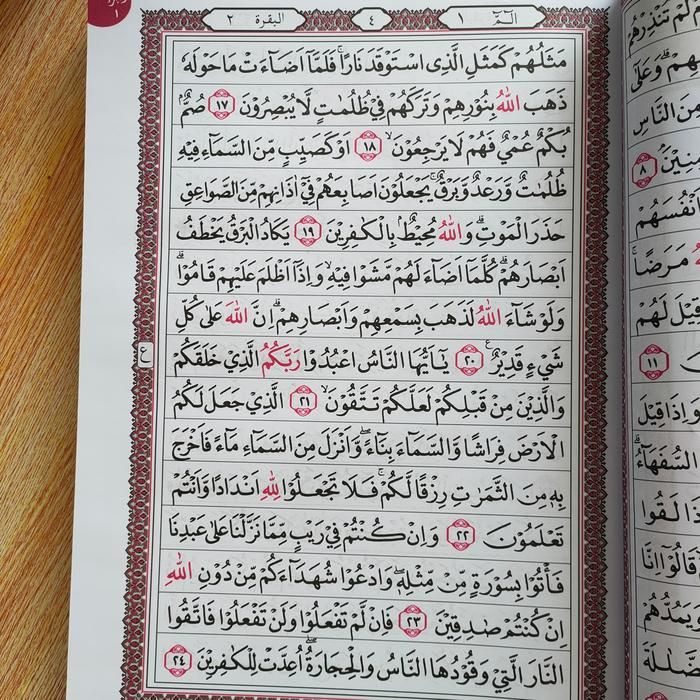 الٓمّٓ ١
٤
البقرة ٢
مَثَلُهُمْ كَمَثَلِ الَّذِى اسْتَوْقَدَ نَارًاۚ فَلَمَّآ اَضَاۤءَتْ مَا حَوْلَهٗ
ذَهَبَ اللّٰهُ بِنُوْرِهِمْ وَتَرَكَهُمْ فِيْ ظُلُمٰتٍ لَّا يُبْصِرُوْنَ ١٧ صُمٌّۢ
بُكْمٌ عُمْيٌ فَهُمْ لَا يَرْجِعُوْنَۙ ١٨ اَوْ كَصَيِّبٍ مِّنَ السَّمَاۤءِ فِيْهِ
ظُلُمٰتٌ وَّرَعْدٌ وَّبَرْقٌۚ يَجْعَلُوْنَ اَصَابِعَهُمْ فِيْٓ اٰذَانِهِمْ مِّنَ الصَّوَاعِقِ
حَذَرَ الْمَوْتِۗ وَاللّٰهُ مُحِيْطٌۢ بِالْكٰفِرِيْنَ ١٩ يَكَادُ الْبَرْقُ يَخْطَفُ
اَبْصَارَهُمْۗ كُلَّمَآ اَضَاۤءَ لَهُمْ مَّشَوْا فِيْهِۙ وَاِذَآ اَظْلَمَ عَلَيْهِمْ قَامُوْاۗ
وَلَوْ شَاۤءَ اللّٰهُ لَذَهَبَ بِسَمْعِهِمْ وَاَبْصَارِهِمْۗ اِنَّ اللّٰهَ عَلٰى كُلِّ
شَيْءٍ قَدِيْرٌ ࣖ ٢٠ يٰٓاَيُّهَا النَّاسُ اعْبُدُوْا رَبَّكُمُ الَّذِيْ خَلَقَكُمْ
ع
وَالَّذِيْنَ مِنْ قَبْلِكُمْ لَعَلَّكُمْ تَتَّقُوْنَۙ ٢١ الَّذِيْ جَعَلَ لَكُمُ
الْاَرْضَ فِرَاشًا وَّالسَّمَاۤءَ بِنَاۤءًۖ وَّاَنْزَلَ مِنَ السَّمَاۤءِ مَاۤءً فَاَخْرَجَ
بِهٖ مِنَ الثَّمَرٰتِ رِزْقًا لَّكُمْۚ فَلَا تَجْعَلُوْا لِلّٰهِ اَنْدَادًا وَّاَنْتُمْ
تَعْلَمُوْنَ ٢٢ وَاِنْ كُنْتُمْ فِيْ رَيْبٍ مِّمَّا نَزَّلْنَا عَلٰى عَبْدِنَا
فَأْتُوْا بِسُوْرَةٍ مِّنْ مِّثْلِهٖۖ وَادْعُوْا شُهَدَاۤءَكُمْ مِّنْ دُوْنِ اللّٰهِ
اِنْ كُنْتُمْ صٰدِقِيْنَ ٢٣ فَاِنْ لَّمْ تَفْعَلُوْا وَلَنْ تَفْعَلُوْا فَاتَّقُوا
النَّارَ الَّتِيْ وَقُوْدُهَا النَّاسُ وَالْحِجَارَةُۖ اُعِدَّتْ لِلْكٰفِرِيْنَ ٢٤
لَمْ تُنْذِرْهُمْ
وَعَلٰٓى
مِنَ النَّاسِ
٨
اَنْفُسَهُمْ
مَرَضًاۚ
قِيْلَ لَهُمْ
١١
وَاِذَا قِيْلَ
السُّفَهَاۤءُ
لَقُوا
قَالُوْٓا اِنَّا
وَيَمُدُّهُمْ